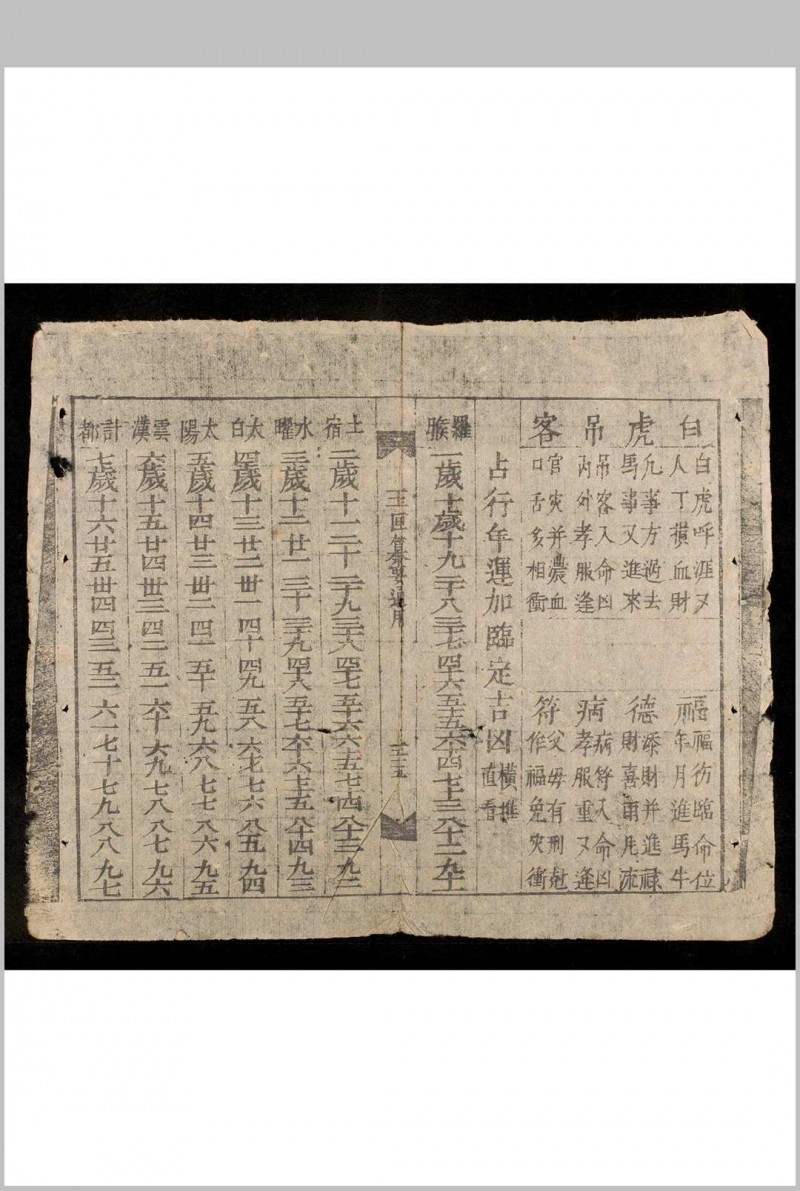 白虎吊客
白虎呼涯又
人丁損血財
凡事方過去
馬事又進來
吊客入命凶
內外孝服逢
官灾并濃血
口舌多相衝
福德病符
福臨命位
年月進馬牛
添財并進禄
財喜雨
病符入命凶
孝服重又逢
父毋有刑尅
作福免灾衝
占行年運加臨定吉凶
橫推
直看
羅㬋
一歲十歲十九二十八三十七四十六五十五六十四七十三八十二九十一
玉匣纂要通用
三五
土宿
二歲十一二十二十九三十八四十七五十六六十五七十四八十三九十二
水曜
三歲十二廿一三十三十九四十八五十七六十六七十五八十四九十三
太白
四歲十三廿二卅一四十四十九五八六七七六八五九四
太陽
五歲十四廿三卅二四一五十五九六八七七八六九五
雲漢
六歲十五廿四卅三四二五一六十六九七八八七九六
計都
七歲十六廿五卅四四三五二六一七十七九八八九七